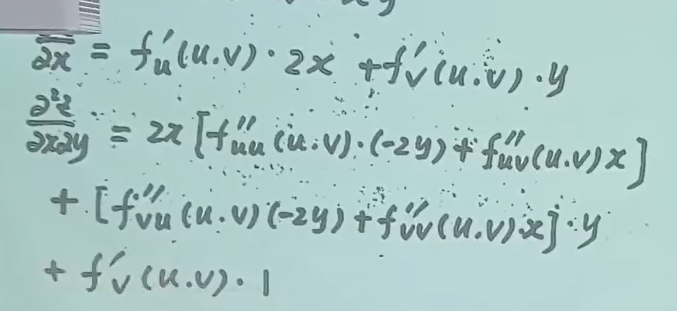 ∂x = f'u(u.v)·2x + f'v(u.v)·y
∂²z/∂x∂y = 2x[f''uu(u.v)·(-2y) + f''uv(u.v)x]
+ [f''vu(u.v)(-2y) + f''vv(u.v)x]·y
+ f'v(u.v)·1